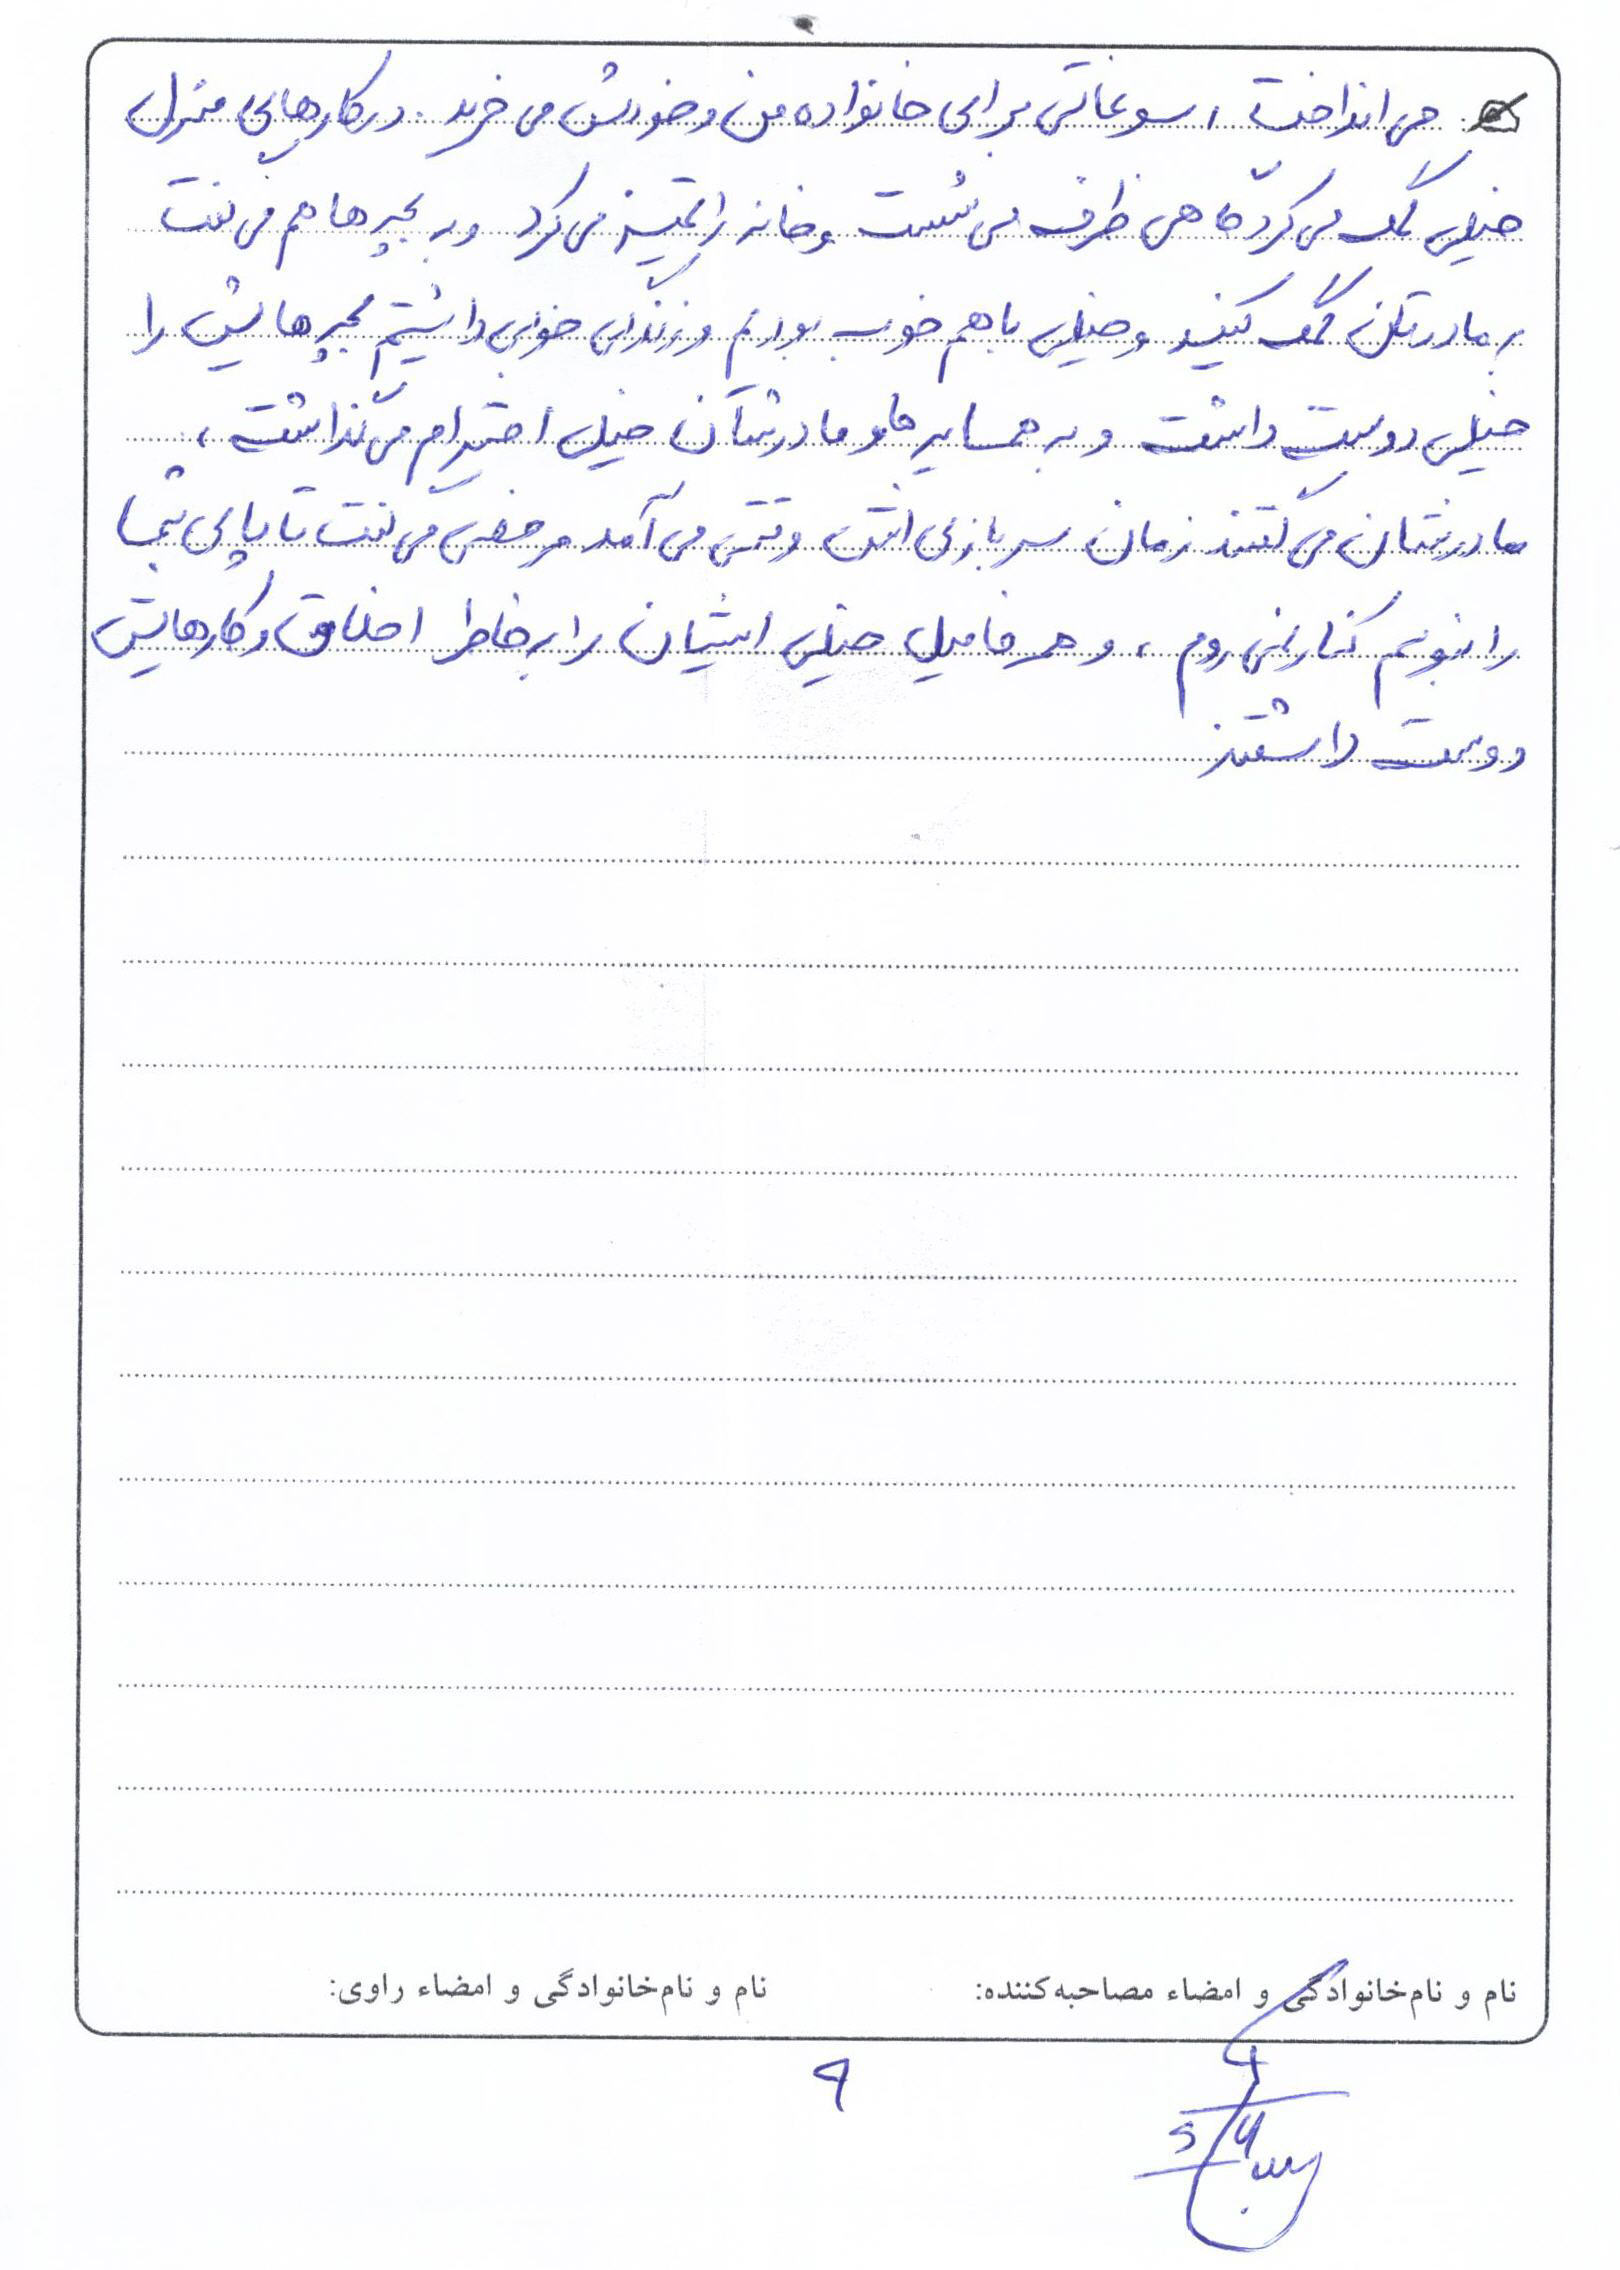 می انداخت ، سوغاتی برای خانواده من و خودش می خرید . در کارهای منزل
خیلی کمک می کرد گاهی ظرف می شست و خانه را تمیز می کرد و به بچه ها هم می گفت
به مادرتان کمک کنید و خیلی باهم خوب بودیم و زندگی خوبی داشتیم بچه هایش را
خیلی دوست داشت و به همسایه ها و مادرشان خیلی احترام می گذاشت ،
مادرشان می گفتند زمان سربازی اش وقتی می آمد مرخصی می گفت تا پای شما
را نبوسم کنار نمی روم ، و همه فامیل خیلی ایشان را به خاطر اخلاق و کارهایش
دوست داشتند
نام و نام‌خانوادگی و امضاء مصاحبه‌کننده:
نام و نام‌خانوادگی و امضاء راوی:
۹